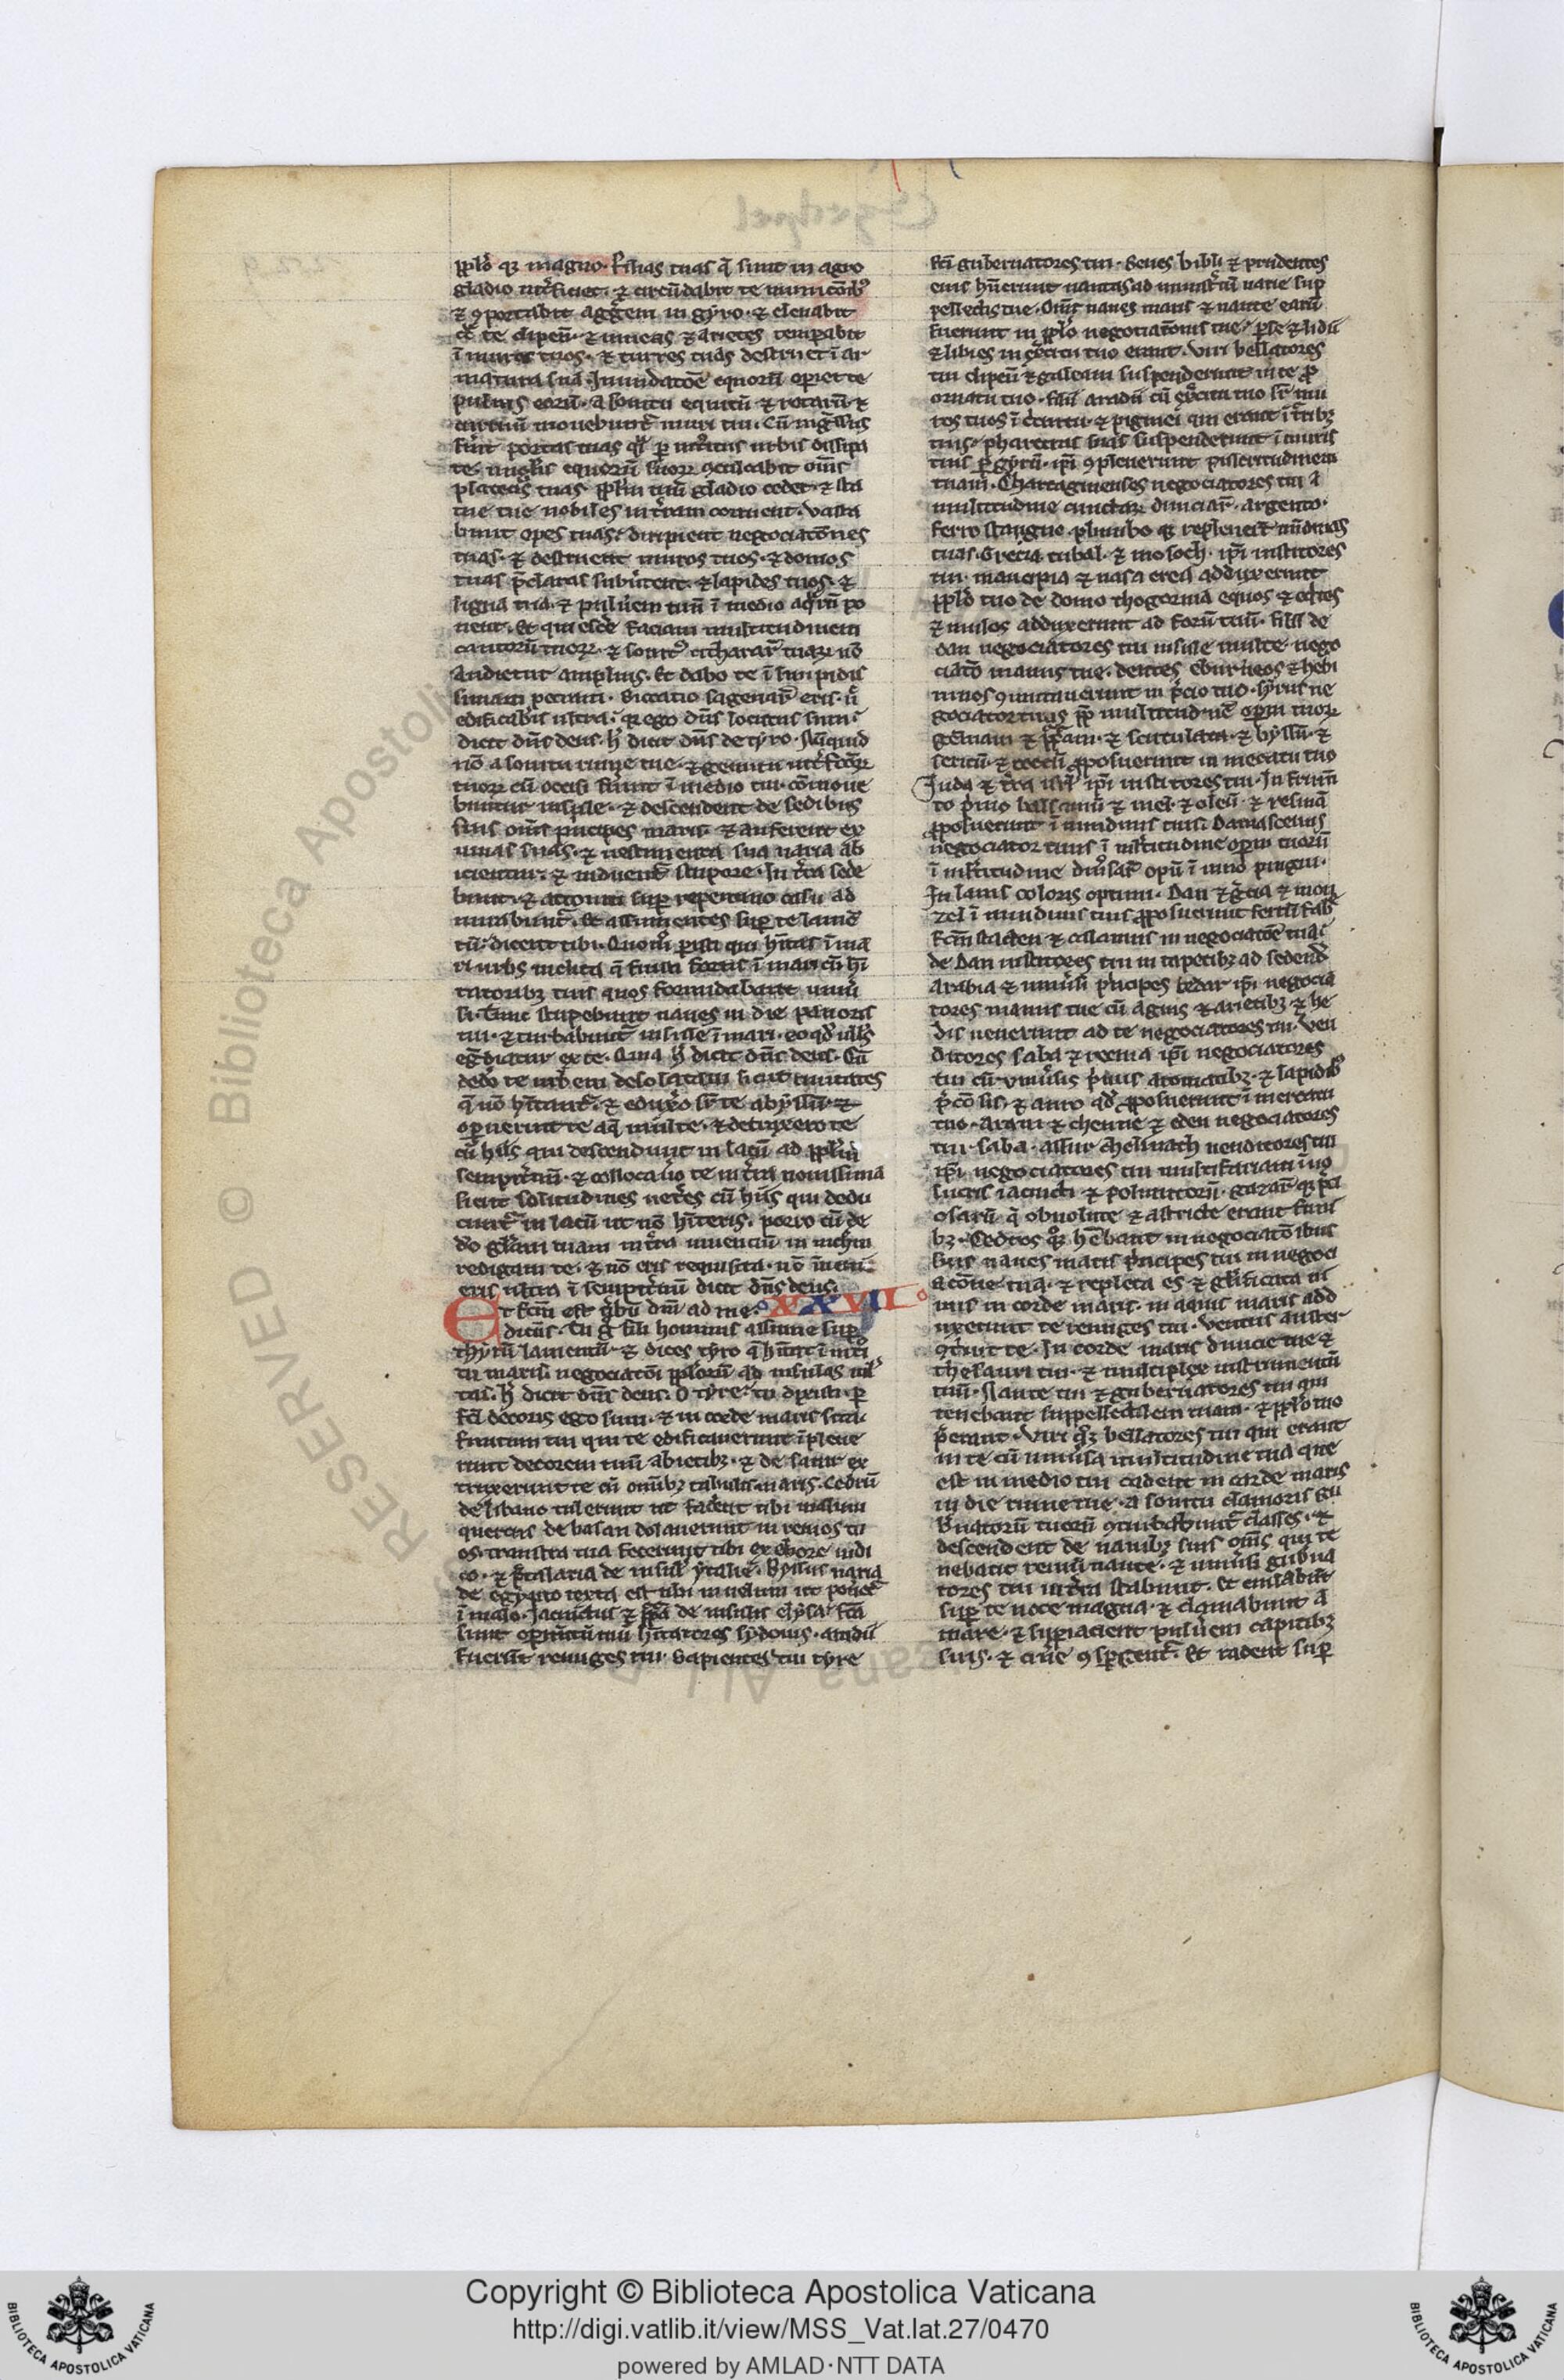 pplo qꝫ magno. Filias tuas q̄ sunt in agro
gladio int̄ficiet. ⁊ circūdabit te municōibꝰ
⁊ ꝯportabit aggēm in gyro. ⁊ eleuabit
cō te clipeū. ⁊ uineas ⁊ arietes temꝑabit
ī muros tuos. ⁊ turres tuas destruet ī ar
matura sua. Inundatōe equorū oꝑiet te
puluis eorū. a sonitu equitū ⁊ rotarū ⁊
curruū mouebunt᷑ muri tui. Cū ingssus
fūit portas tuas qͣsi ꝑ int̄oitus urbis dissipa
te. ungulis equorū suoꝝ ꝯculcabit om̄s
plateas tuas pplm tuū gladio cedet. ⁊ sta
tue tue nobiles in t̄ram corruent. vasta
bunt opes tuas. diripient negociatōnes
tuas. ⁊ destruent muros tuos. ⁊ domos
tuas p̄claras subūtent. ⁊ lapides tuos. ⁊
ligna tua. ⁊ puluēm tuū ī medio aqͣrū po
nent. Et quiescē faciam multitudinem
cantorū tuoꝝ. ⁊ sonitꝰ cithararū tuaꝝ nō
audietur amplius. Et dabo te ī limpidis
simam petram. Siccatio sagenarū eris. n̄
edificabis ultra. qꝛ ego dn̄s locutus sum.
dicit dn̄s deus. h̄ dicit dn̄s de tyro. Nūquid
nō a sonitu ruine tue. ⁊ gemitu int̄fectoꝝ
tuoꝝ cū occisi fūint ī medio tui. cōmoue
buntur insule. ⁊ descendent de sedibus
suis om̄s principes maris. ⁊ auferent ex
uuias suas. ⁊ uestimenta sua uaria ab
icient. ⁊ induent᷑ stupore. In t̄ra sede
bunt. ⁊ attoniti suꝑ repentino casu ad
mirabunt᷑. Et assumentes suꝑ te lamē
tū. dicent tibi. Quomō ꝑisti qui hītas ī ma
ri urbs inclita q̄ fuisti fortis ī mari cū hī
tatoribꝫ tuis quos formidabant uniū
si. Tunc stupebunt naues in die pauoris
tui. ⁊ turbabunt᷑ insule ī mari. eo qd̄ nullꝰ
eg̅diatur ex te. Quia h̄ dicit dn̄s deus. Cū
dedō te urbem desolatam sicut ciuitates
q̄ nō hītant᷑. ⁊ eduxō suꝑ te abyssū. ⁊
oꝑuerint te aq̄ multe. ⁊ detraxero te
cū hiis qui descendunt in lacū ad pplm
sempit̄nū. ⁊ collocauō te in t̄ra nouissima
sicut solitudines uetēs cū hiis qui dedu
cunt᷑ in lacū ut nō hīteris. porro cū de
dō glām tuam in t̄ra uiuenciū. in nichm
redigam te. ⁊ nō eris. requisita. nō inueni
eris ultra ī sempit̄nū dicit dn̄s deus.
Et fcm̄ est ūbū dn̄i ad me. XXVII
dicēs. Tu g̊ fili hominis assume suꝑ
thyrū lamentū. ⁊ dices tyro q̄ hītat ī int̄oi
tu maris. negociatōi pplorū ad insulas ml̄
tas. h̄ dicit dn̄s deus. O tyre. tu dixisti. ꝑ
fcī decoris ego sum. ⁊ in corde maris sita.
finitimi tui qui te edificauerunt īpleue
runt decorem tuū abietibꝫ. ⁊ de sanir ex
truxerunt te cū omībꝫ tabulatis maris. Cedrū
de libano tulerunt ut facēent tibi malum
quercus de basan dolauerunt in remos tu
os. transtra tua fecerunt tibi ex ebore indi
co. ⁊ p̄toriola de insulis ytalie. Byssus uaria
de egypto texta est tibi in uelum ut ponet᷑
ī malo. Iacinctus ⁊ pp̄a de insulis elysa. fcā
sunt oꝑimtū tuū. hītatores sydonis. aradii
fuerūt remiges tui. Sapientes tui tyre
fcī gubernatores tui. Senes bibli ⁊ prudentes
eius hūerunt nautas ad ministīū uarie suꝑ
pellectis tue. Om̄s naues maris ⁊ naute earū
fuerunt in pplo negociatōnis tue. ꝑse ⁊ lidii
⁊ libies in exc̄itu tuo erant. Viri bellatores
tui clipeū ⁊ galeam suspenderunt in te ꝓ
ornatu tuo. Filii aradii cū exc̄itu tuo sꝑ mu
ros tuos ī circuitu. ⁊ pigmei qui erant ī tr̄ibꝫ
tuis. pharetras suas suspenderunt ī muris
tuis ꝑ gyrū. ip̄i ꝯpleuerunt pulcritudinem
tuam. Chartaginenses negociatores tui a
multitudine cunctaꝝ diuiciaꝝ. argento.
ferro. stangno. plumbo qꝫ repleuerūt nūdinas
tuas. Grecia. tubal. ⁊ mosoch. ip̄i institores
tui. mancipia ⁊ uasa erea adduxerunt
pplo tuo de domo thogorma equos ⁊ eqtes
⁊ mulos adduxerunt ad forū tuū. filii de
dan negociatores tui insule multe. nego
ciatō manus tue. dentes eburneos ⁊ hebi
ninos ꝯmutauerunt in p̄cio tuo. Syrus ne
gociator tuus ꝓpt̄ multitudinē oꝑum tuoꝝ
gemmam ⁊ pp̄am. ⁊ scutulata. ⁊ byssū. ⁊
sericū. ⁊ cocchū ꝓposuerunt in mercatu tuo
Iuda ⁊ t̄ra isrl ip̄i institores tui. In frum̄
to p̄mo balsamū ⁊ mel. ⁊ oleū. ⁊ resinā
ꝓposuerunt ī nundinis tuis. Damascenus
negociator tuus ī multitudine oꝑum tuorū
ī multitudine diūsarū opū ī uino pingui.
In lanis coloris optimi. Dan ⁊ g̅cia ⁊ mou
zel ī nundinis tuis ꝓposuerunt ferrū fab̄
fcm̄ stacten ⁊ calamus in negociatōe tua.
de Dan institores tui in tapetibꝫ ad sedend̄
Arabia ⁊ uniūsi p̄ncipes cedar ip̄i negocia
tores manus tue cū agnis ⁊ arietibꝫ ⁊ he
dis uenerunt ad te negociatores tui. Ven
ditores saba ⁊ reema ip̄i negociatores
tui cū uniūsis p̄mis aromatibꝫ. ⁊ lapidibꝰ
p̄cōsis. ⁊ auro qd̄ ꝓposuerunt ī mercatu
tuo. Aram ⁊ chenne ⁊ eden negociatores
tui. Saba. assur. chelmath uenditores tui
ip̄i negociatores tui multifariam ī uo
lucris iacincti ⁊ polimitorū. gazarūqꝫ p̄ci
osarū q̄ obuolute ⁊ astricte erant funi
bꝫ. Cedros qͦqꝫ hēbant in negociatōibus
suis naues maris p̄ncipes tui in negoci
acōne tua. ⁊ repleta es ⁊ glīficata ni
mis in corde maris. in aquis maris add
uxerunt te remiges tui. ventus auster
ꝯt̄uit te. In corde maris diuicie tue ⁊
thesauri tui. ⁊ multiplex instrumentū
tuū. Naute tui ⁊ gubernatores tui qui
tenebant suppellectilem tuam. ⁊ pplo tuo
p̄erant. Viri qͦqꝫ bellatores tui qui erant
in te cū uniūsa multitudine tua que
est in medio tui cadent in corde maris
in die ruine tue. a sonitu clamoris gu
b̄natorū tuorū ꝯturbabunt᷑ classes. ⁊
descendent de nauibꝫ suis om̄s qui te
nebant remū. naute. ⁊ uniūsi gub̄na
tores tui in t̄ra stabunt. Et eiulabūt
suꝑ te uoce magna. ⁊ clamabunt a
mare. ⁊ suꝑiacient puluēm capitibꝫ
suis. ⁊ cinē ꝯsꝑgent᷑. Et radent suꝑ
RESERVED © Biblioteca Apostoli
Copyright © Biblioteca Apostolica Vaticana
http://digi.vatlib.it/view/MSS_Vat.lat.27/0470
powered by AMLAD·NTT DATA
BIBLIOTECA APOSTOLICA VATICANA
BIBLIOTECA APOSTOLICA VATICANA